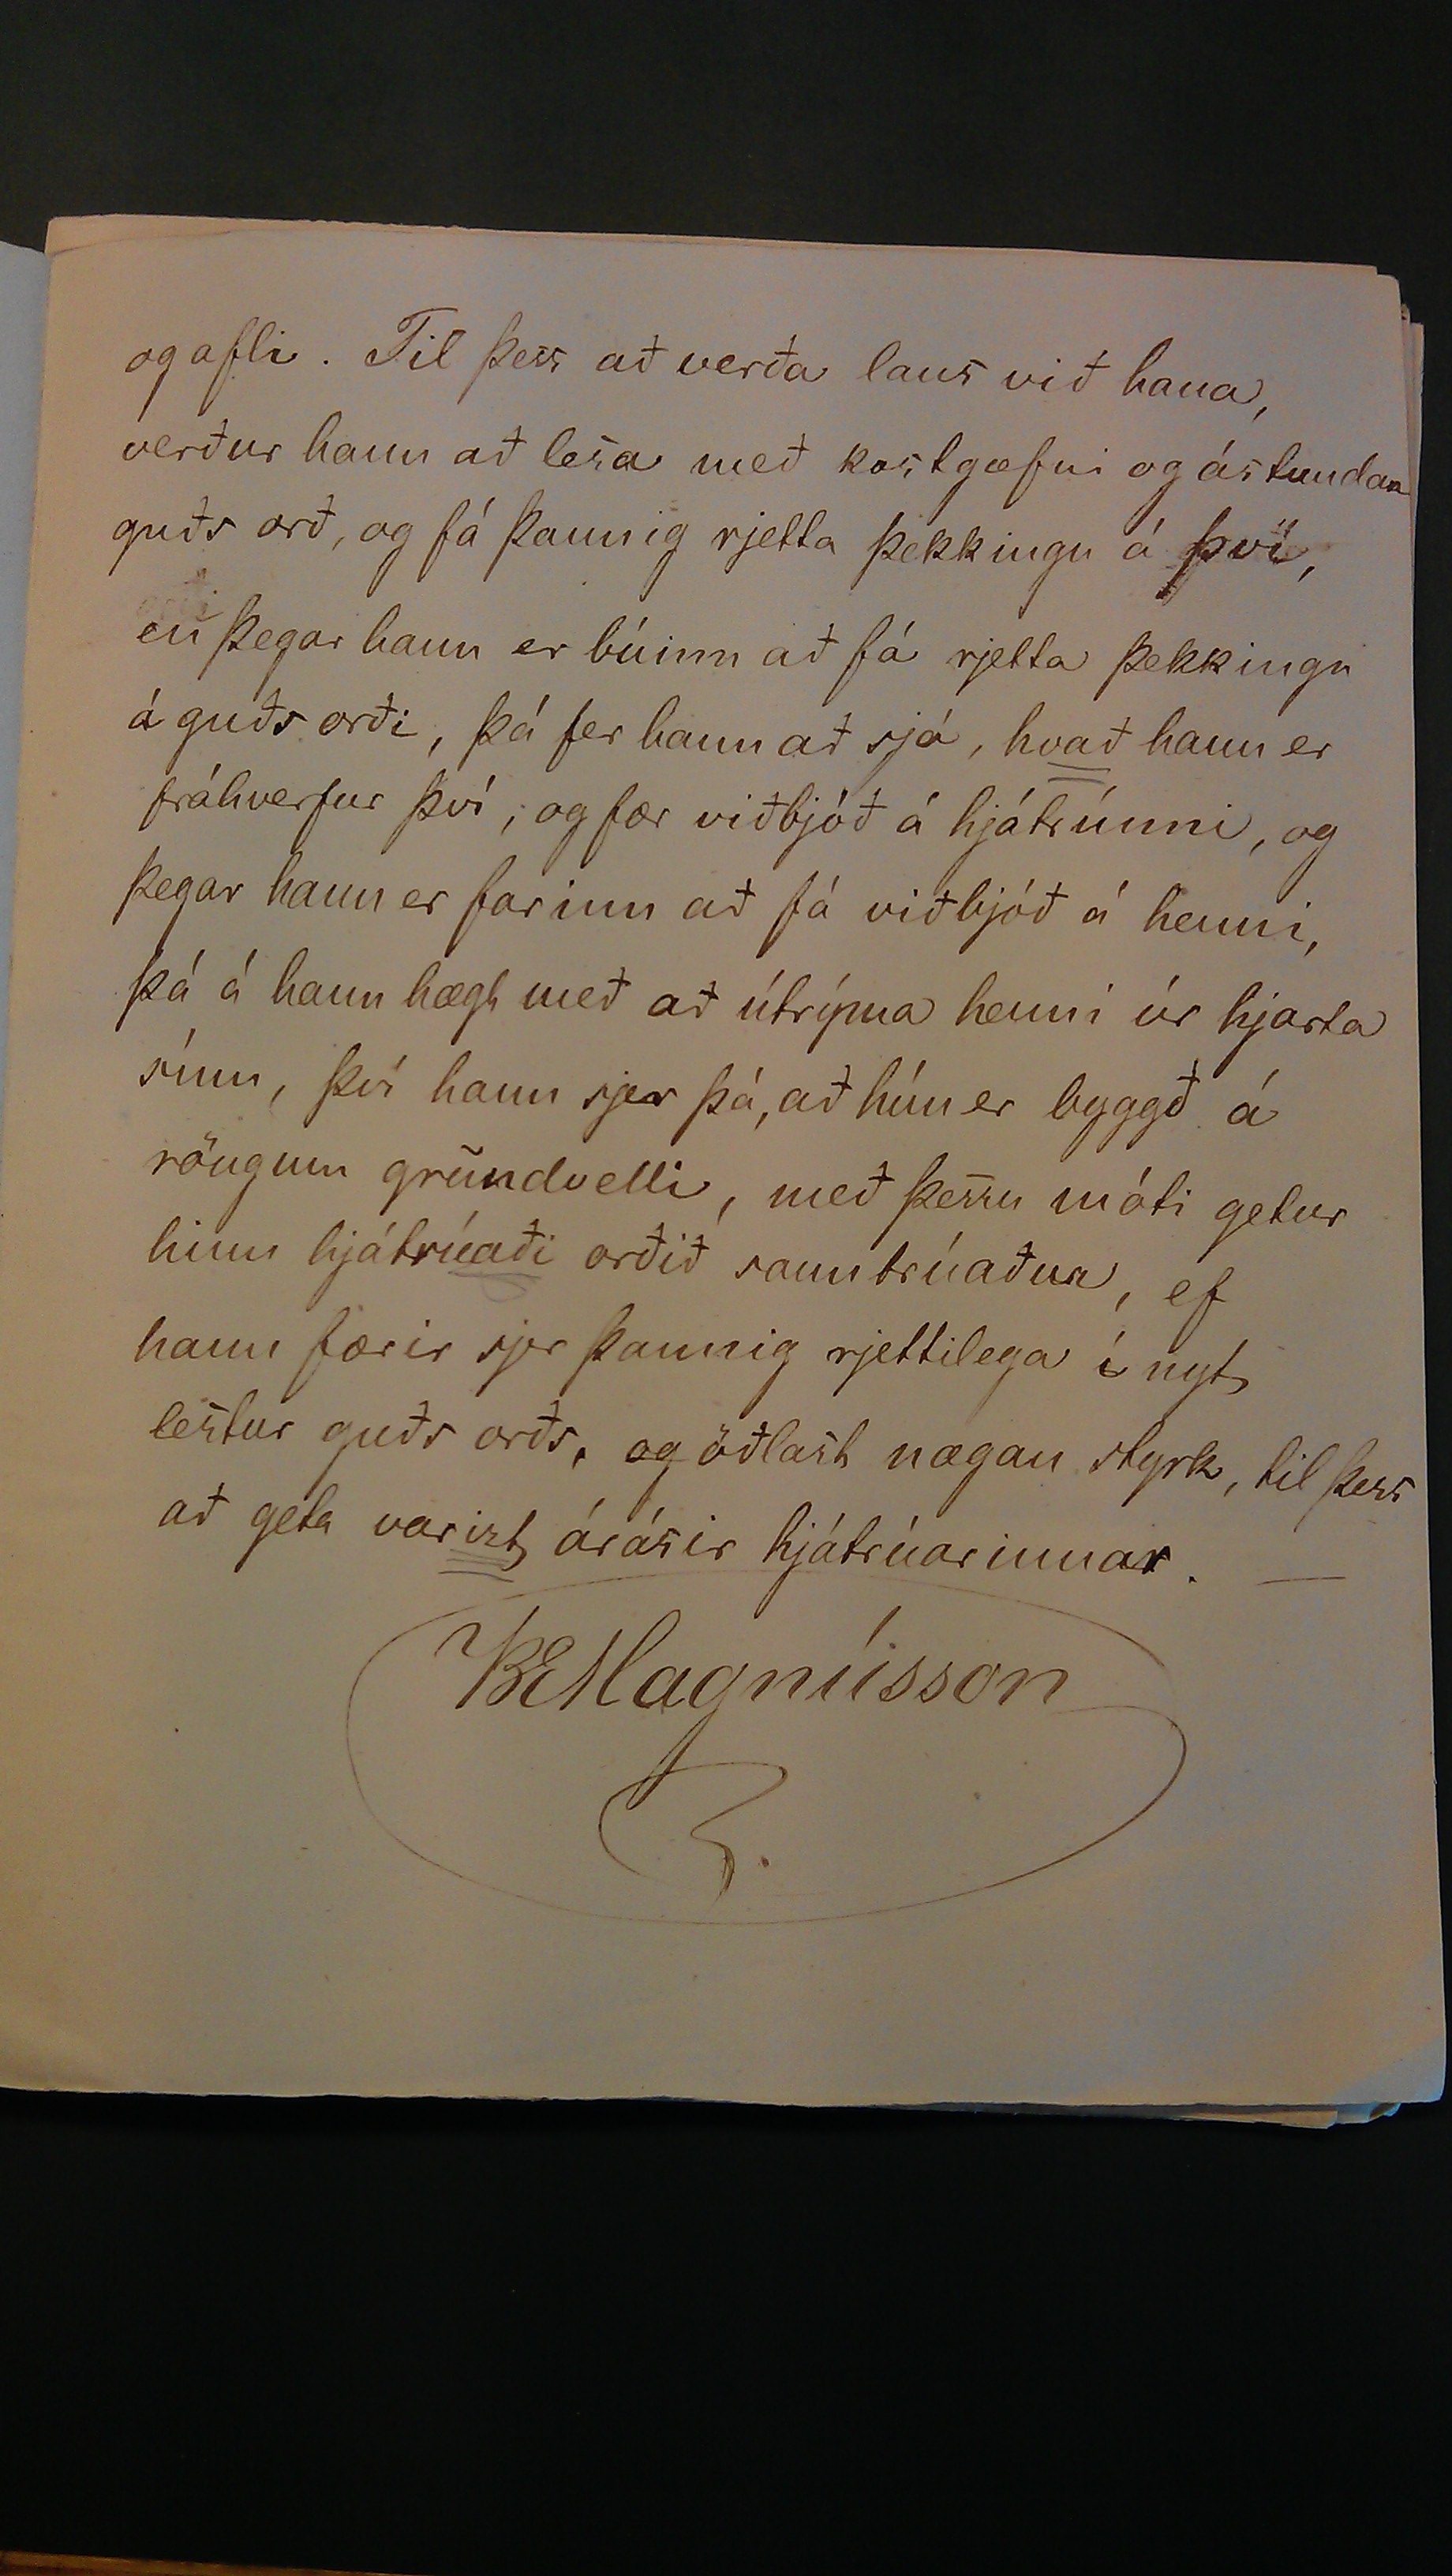 og afli. Til þess að verða laus við hana,
verður hann að lesa með kostgæfni og ástundan
guðs orð, og fá þannig rjetta þekkingu á því,
en þegar hann er búinn að fá rjetta þekkingu
á guðs orði, þá fer hann að sjá, hvað hann er
fráhverfur því, og fær viðbjóð á hjátrúnni, og
þegar hann er farinn að fá viðbjóð á henni,
þá á hann hægt með að útrýma henni úr hjarta
sínu, því hann sjer þá, að hún er byggð á
röngum grundvelli, með þessu móti getur
hinn hjátrúaði orðið sanntrúaður, ef
hann færir sjer þannig rjettilega í nyt
lestur guðs orðs, og öðlast nægan styrk, til þess
að geta varizt árásir hjátrúarinnar. —
BEMagnússon